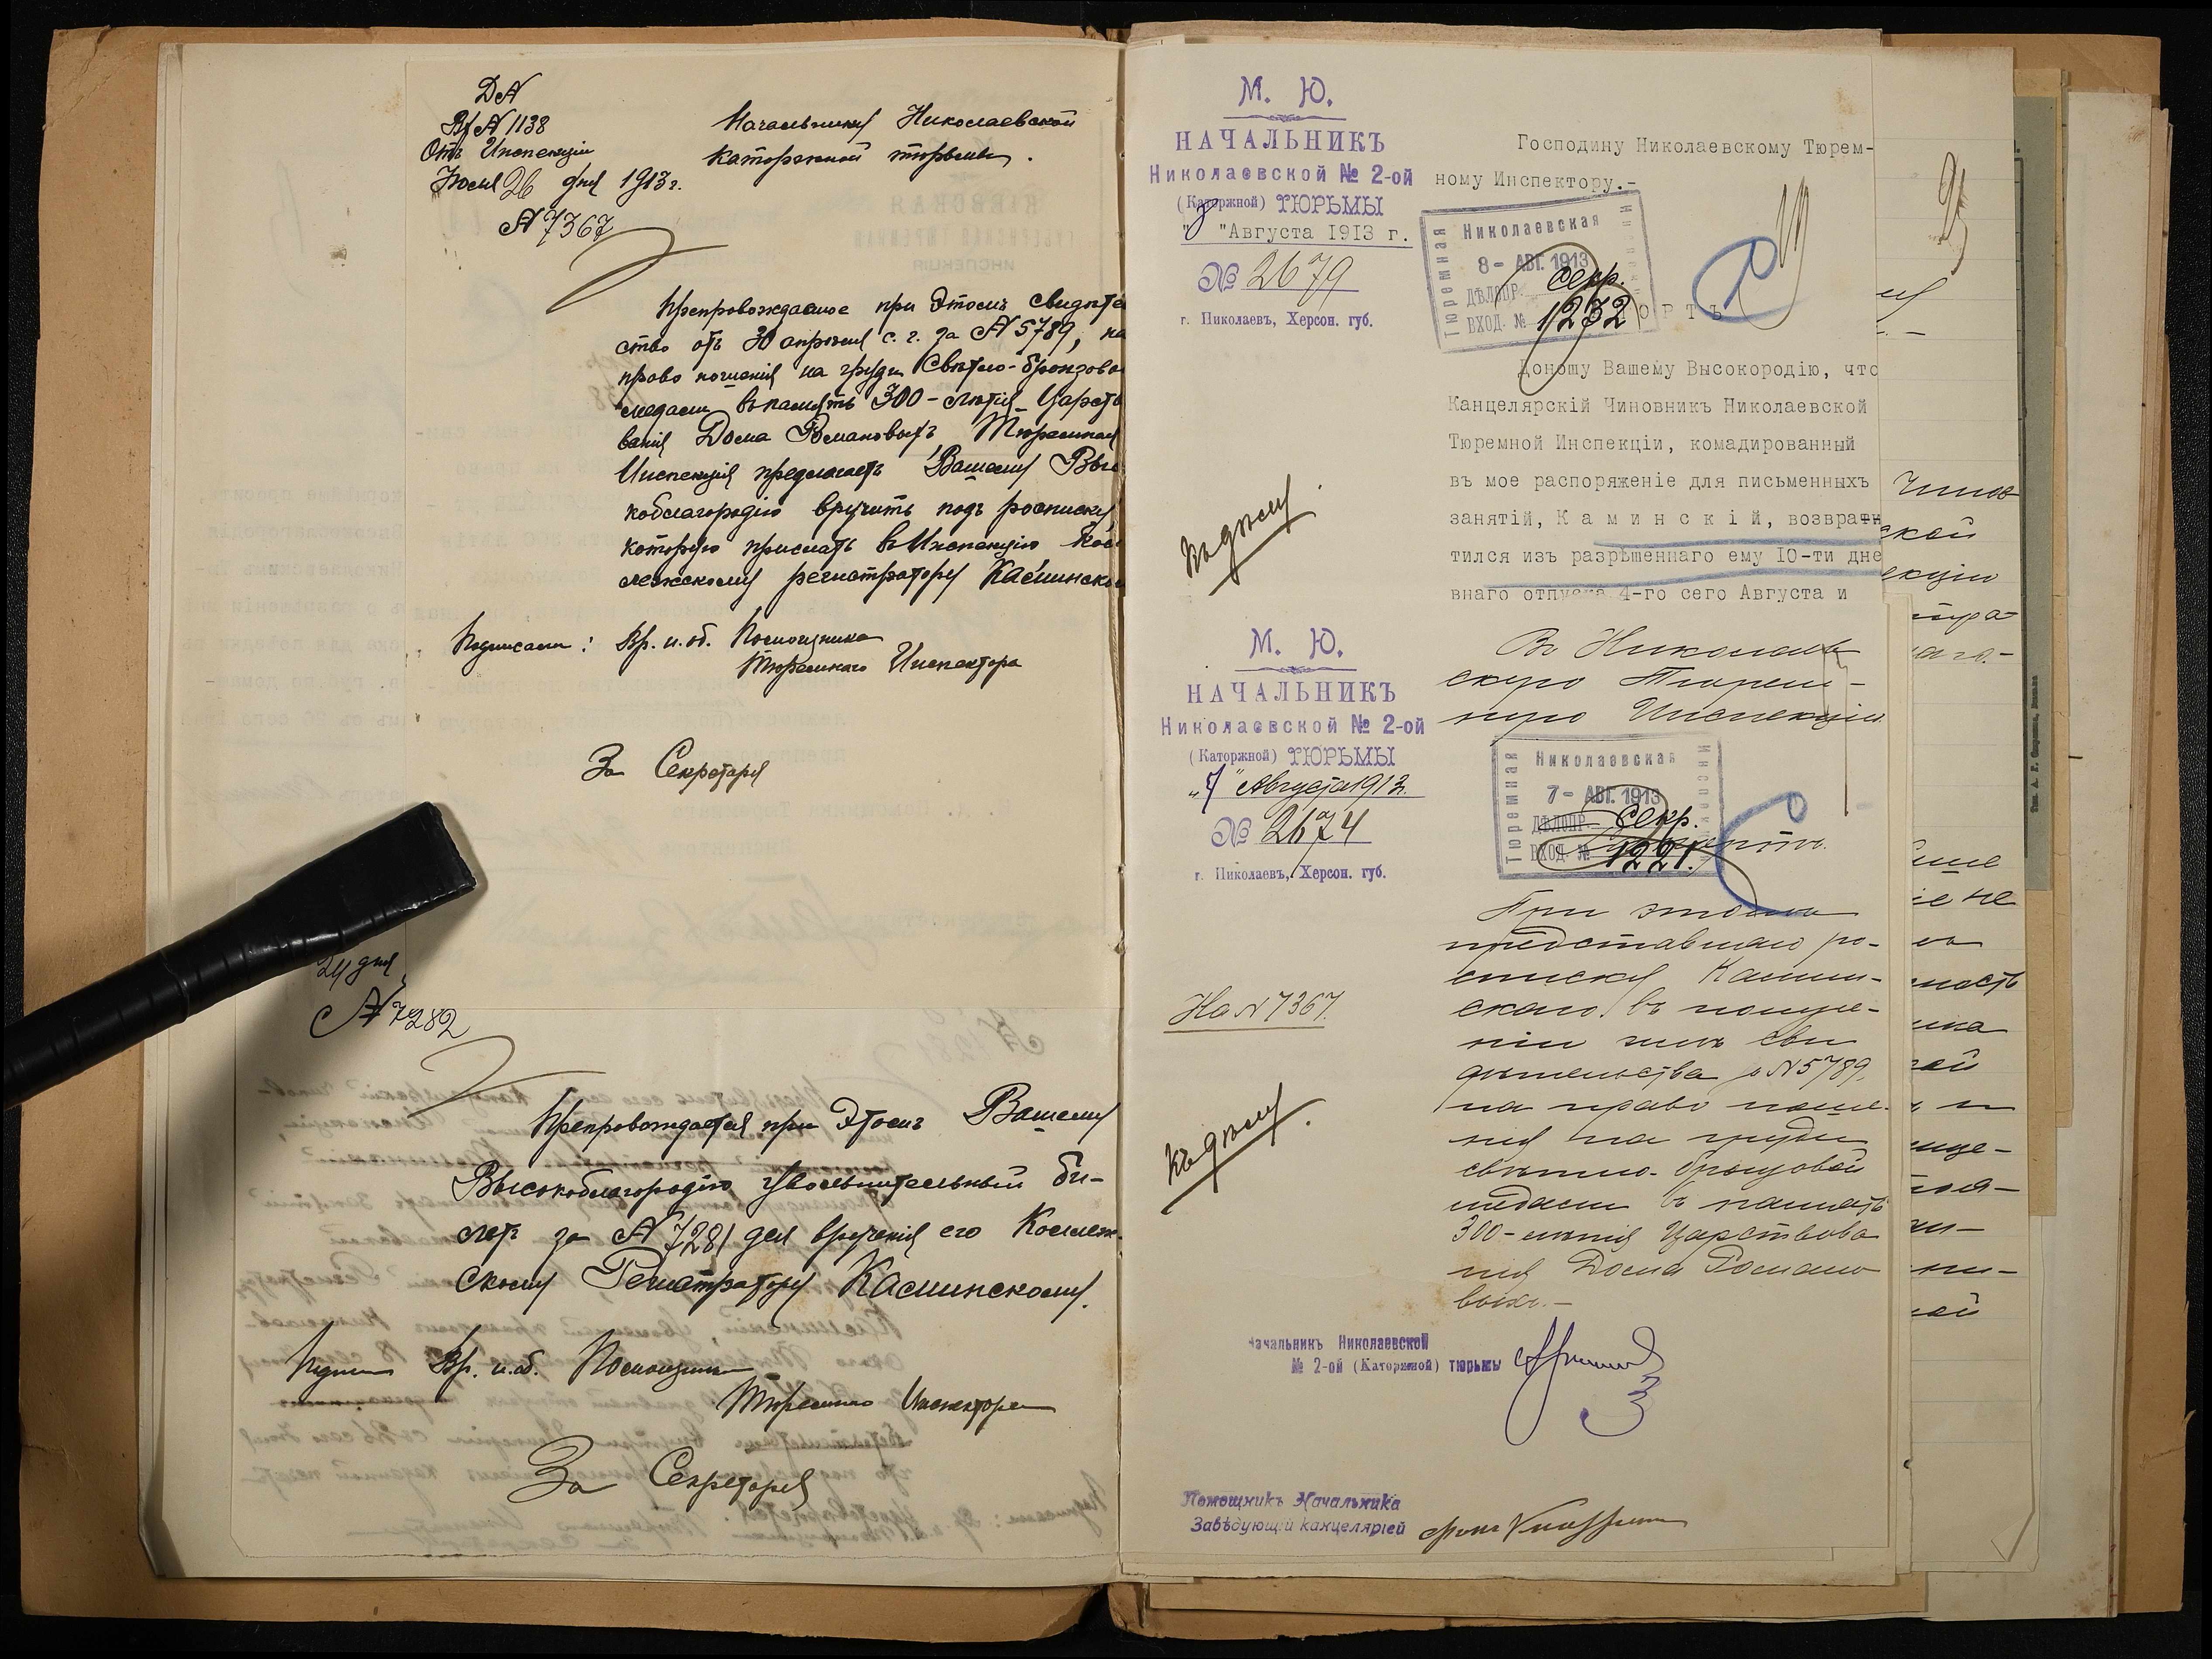 Вх № 1138
Отъ Инспекціи
Іюля 26 дня 1913 г.
№ 7367
Начальнику Николаевской
каторжной тюрьмы.
Препровождаемое при этомъ свидѣте
ство отъ 30 апрѣля с. г. за № 5789, на
право ношенія на груди свѣтло-бронзово
медали въ память 300-лѣтія Царство
ванія Дома Романовыхъ, Тюремная
Инспекція предлагаетъ Вашему Высо
коблагородію вручить подъ росписку
которую прислать въ Инспекцію Кол
лежскому регистратору Каминском
Подписали: Вр. и. об. Помощника
Тюремнаго Инспектора
За Секретаря
24 дня
№ 7282
Препровождается при этомъ Вашему
Высокоблагородію увольнительный би-
летъ за № 7281 для врученія его Коллеж-
скому Регистратору Каминскому.
Вр. и. об. Помощника
Тюремнаго Инспектора
За Секретаря
М. Ю.
НАЧАЛЬНИКЪ
Николаевской № 2-ой
(Каторжной) ТЮРЬМЫ
"8" Августа 1913 г.
№ 2679
г. Николаевъ, Херсон. губ.
Господину Николаевскому Тюрем-
ному Инспектору.-
Николаевская
Тюремная
8 - АВГ. 1913
ДѢЛОПР. Секр.
ВХОД. № 1232
ОРТЪ
Доношу Вашему Высокородію, что
Канцелярскій Чиновникъ Николаевской
Тюремной Инспекціи, комадированный
въ мое распоряженіе для письменныхъ
занятій, Каминскій, возврати
тился изъ разрѣшеннаго ему 10-ти дне
внаго отпуска 4-го сего Августа и
Къ дѣлу.
М. Ю.
НАЧАЛЬНИКЪ
Николаевской № 2-ой
(Каторжной) ТЮРЬМЫ
"7" Августа 1913 г.
№ 2674
г. Николаевъ, Херсон. губ.
Въ Николаев
скую Тюрем-
ную Инспекцію
Николаевская
Тюремная
7 - АВГ. 1913
ДѢЛОПР. Секр.
ВХОД. № 1221.
На № 7367.
Къ дѣлу.
При этомъ
представляю ро-
списку Камин-
скаго въ получе-
ніи имъ сви
дѣтельства № 5789.
на право ноше-
нія на груди
свѣтло-бронзовой
медали въ память
300-лѣтія Царствова
нія Дома Романо
выхъ.-
Начальникъ Николаевской
№ 2-ой (Каторжной) тюрьмы
Помощникъ Начальника
Завѣдующій канцеляріей